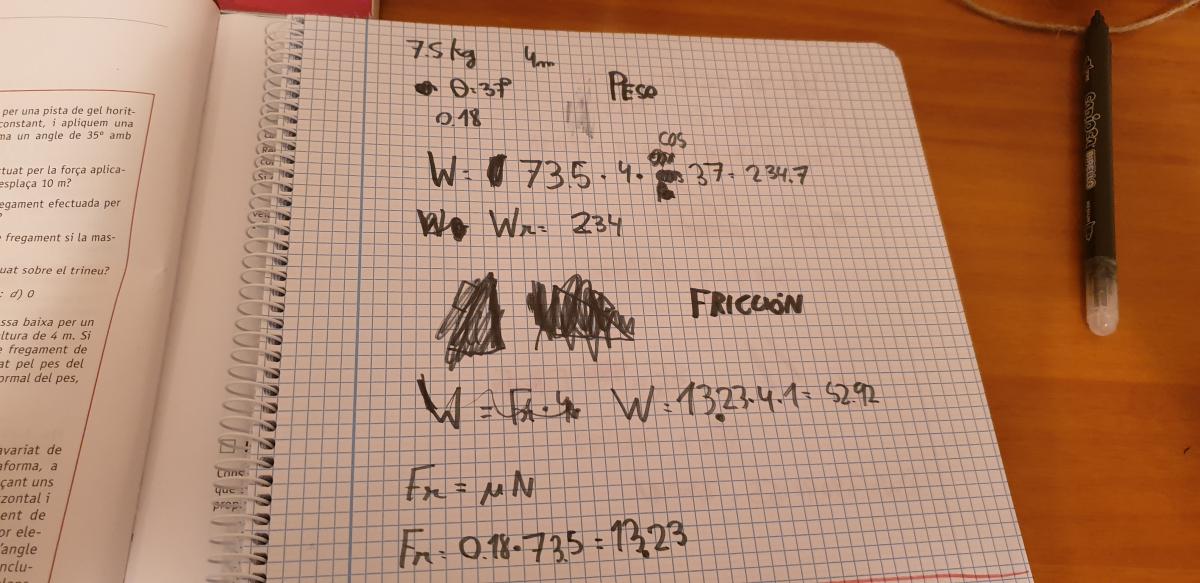 per una pista de gel horit-
constant, i apliquem una
ma un angle de 35° amb
tuat per la força aplica-
esplaça 10 m?
egament efectuada per
fregament si la mas-
uat sobre el trineu?
: d) 0
ssa baixa per un
ltura de 4 m. Si
e fregament de
at pel pes del
ormal del pes,
avariat de
aforma, a
çant uns
zontal i
ent de
or ele-
l'angle
nclu-
7.5 kg 4m
θ=37º PESO
0.18
cos
W = 73.5 · 4 · 37 = 234.7
Wr = 234
FRICCIÓN
W = Fr · 4 W = 13.23 · 4 · 1 = 52.92
Fr = μN
Fr = 0.18 · 73.5 = 13.23
Cons
que
prop